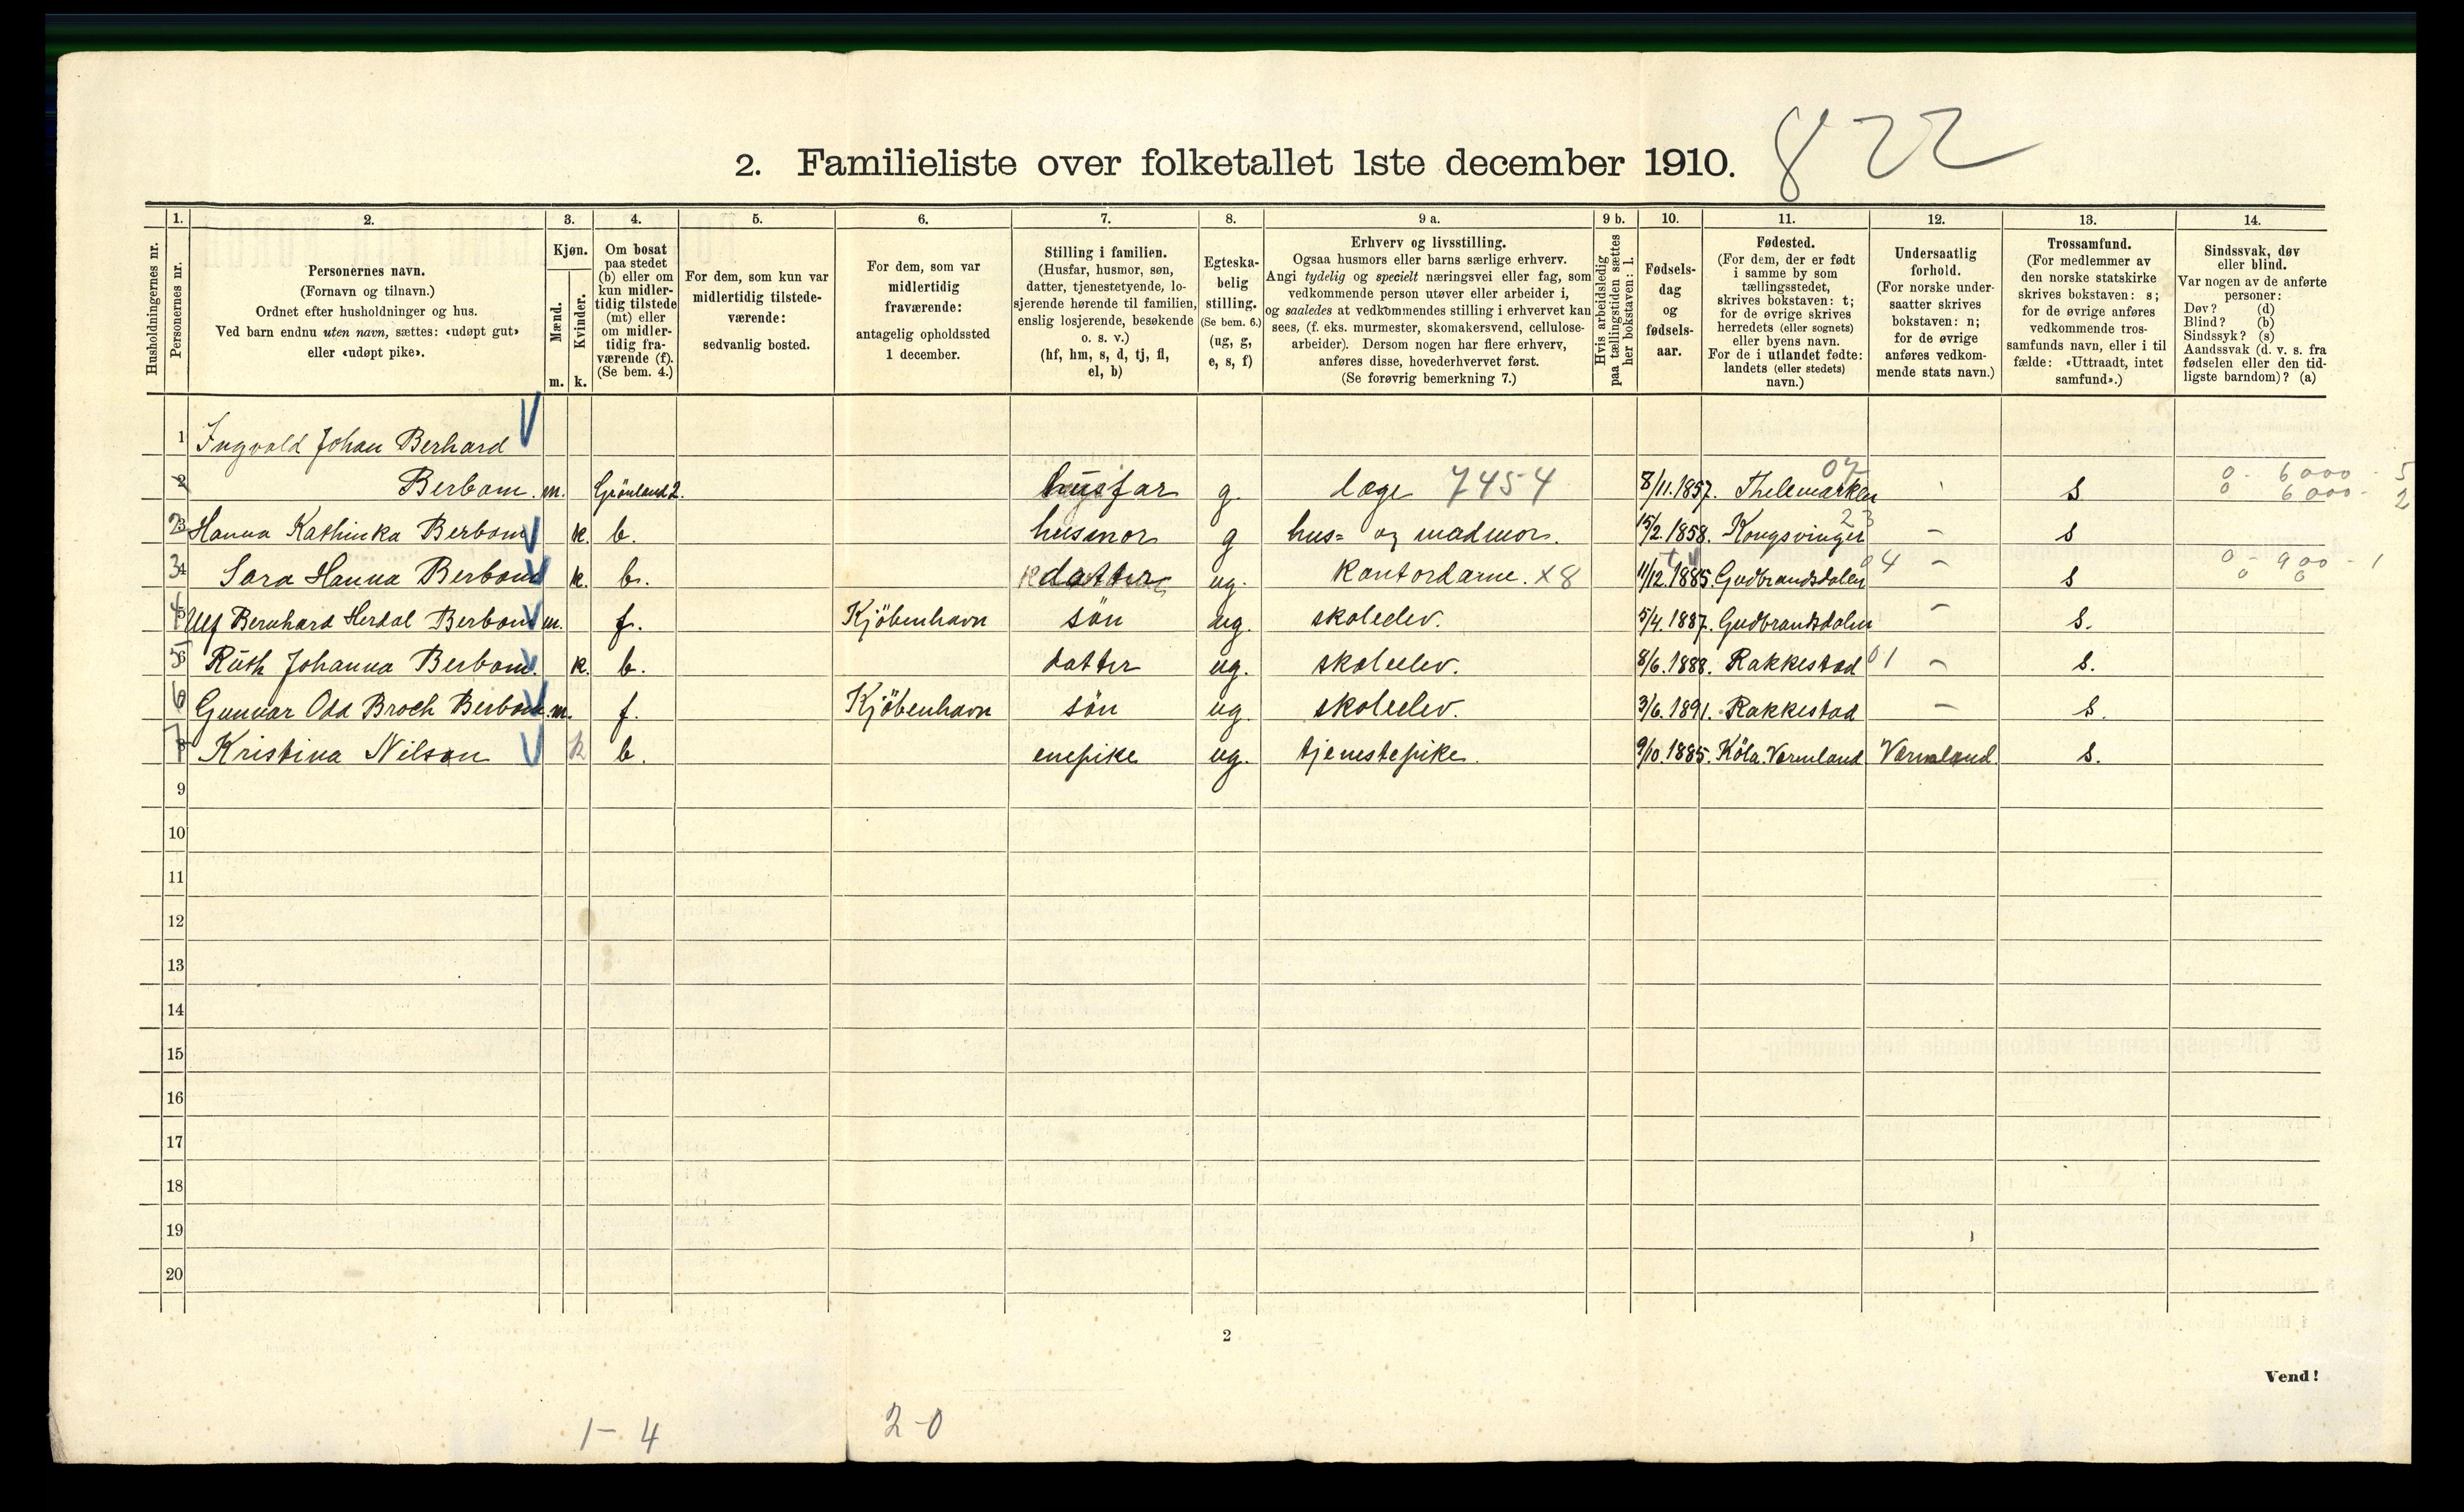 822
2. Familieliste over folketallet 1ste december 1910.
Husholdningernes nr.
1. Personernes nr.
2. Personernes navn.
(Fornavn og tilnavn.)
Ordnet efter husholdninger og hus.
Ved barn endnu uten navn, sættes: «udøpt gut»
eller «udøpt pike».
3. Kjøn.
Mænd. m.
Kvinder. k.
4. Om bosat
paa stedet
(b) eller om
kun midler-
tidig tilstede
(mt) eller
om midler-
tidig fra-
værende (f).
(Se bem. 4.)
5. For dem, som kun var
midlertidig tilstede-
værende:
sedvanlig bosted.
6. For dem, som var
midlertidig
fraværende:
antagelig opholdssted
1 december.
7. Stilling i familien.
(Husfar, husmor, søn,
datter, tjenestetyende, lo-
sjerende hørende til familien,
enslig losjerende, besøkende
o. s. v.)
(hf, hm, s, d, tj, fl,
el, b)
8. Egteska-
belig
stilling.
(Se bem. 6.)
(ug, g,
e, s, f)
9 a. Erhverv og livsstilling.
Ogsaa husmors eller barns særlige erhverv.
Angi tydelig og specielt næringsvei eller fag, som
vedkommende person utøver eller arbeider i,
og saaledes at vedkommendes stilling i erhvervet kan
sees, (f. eks. murmester, skomakersvend, cellulose-
arbeider). Dersom nogen har flere erhverv,
anføres disse, hovederhvervet først.
(Se forøvrig bemerkning 7.)
9 b. Hvis arbeidsledig
paa tællingstiden sættes
her bokstaven: l.
10. Fødsels-
dag
og
fødsels-
aar.
11. Fødested.
(For dem, der er født
i samme by som
tællingsstedet,
skrives bokstaven: t;
for de øvrige skrives
herredets (eller sognets)
eller byens navn.
For de i utlandet fødte:
landets (eller stedets)
navn.)
12. Undersaatlig
forhold.
(For norske under-
saatter skrives
bokstaven: n;
for de øvrige
anføres vedkom-
mende stats navn.)
13. Trossamfund.
(For medlemmer av
den norske statskirke
skrives bokstaven: s;
for de øvrige anføres
vedkommende tros-
samfunds navn, eller i til
fælde: «Uttraadt, intet
samfund».)
14. Sindssvak, døv
eller blind.
Var nogen av de anførte
personer:
Døv? (d)
Blind? (b)
Sindssyk? (s)
Aandssvak (d. v. s. fra
fødselen eller den tid-
ligste barndom)? (a)
1 Ingvald Johan Berhard
2 Berbom. m. Grönland 2. husfar g. læge 7454 8/11. 1857. Thelemarken 07 s 0 - 6000 - 5
0 6000 - 2
2 3 Hanna Kathinka Berbom k. b. husmor g hus= og madmor. 15/2. 1858. Kongsvinger 23 – s
3 4 Sara Hanna Berbom k. b. datter ug. Kontordame. x8 11/12. 1885. Gudbrandsdalen 04 – s 0 - 900 - 1
0 0
4 5 Ulf Bernhard Herdal Berbom m. f. Kjöbenhavn sön ug. skoleelev. 5/4. 1887. Gudbrandsdalen – s.
5 6 Ruth Johanna Berbom. k. b. datter ug. skoleelev. 8/6. 1888. Rakkestad 01 – s.
6 Gunnar Odd Broch Berbom. m. f. Kjöbenhavn sön ug. skoleelev. 3/6. 1891. Rakkestad – s.
7 8 Kristina Nilson k b. enepike ug. tjenestepike. 9/10. 1885. Köla. Vermland Värmland s.
9
10
11
12
13
14
15
16
17
18
19
20
2
Vend!
1 - 4
2 - 0